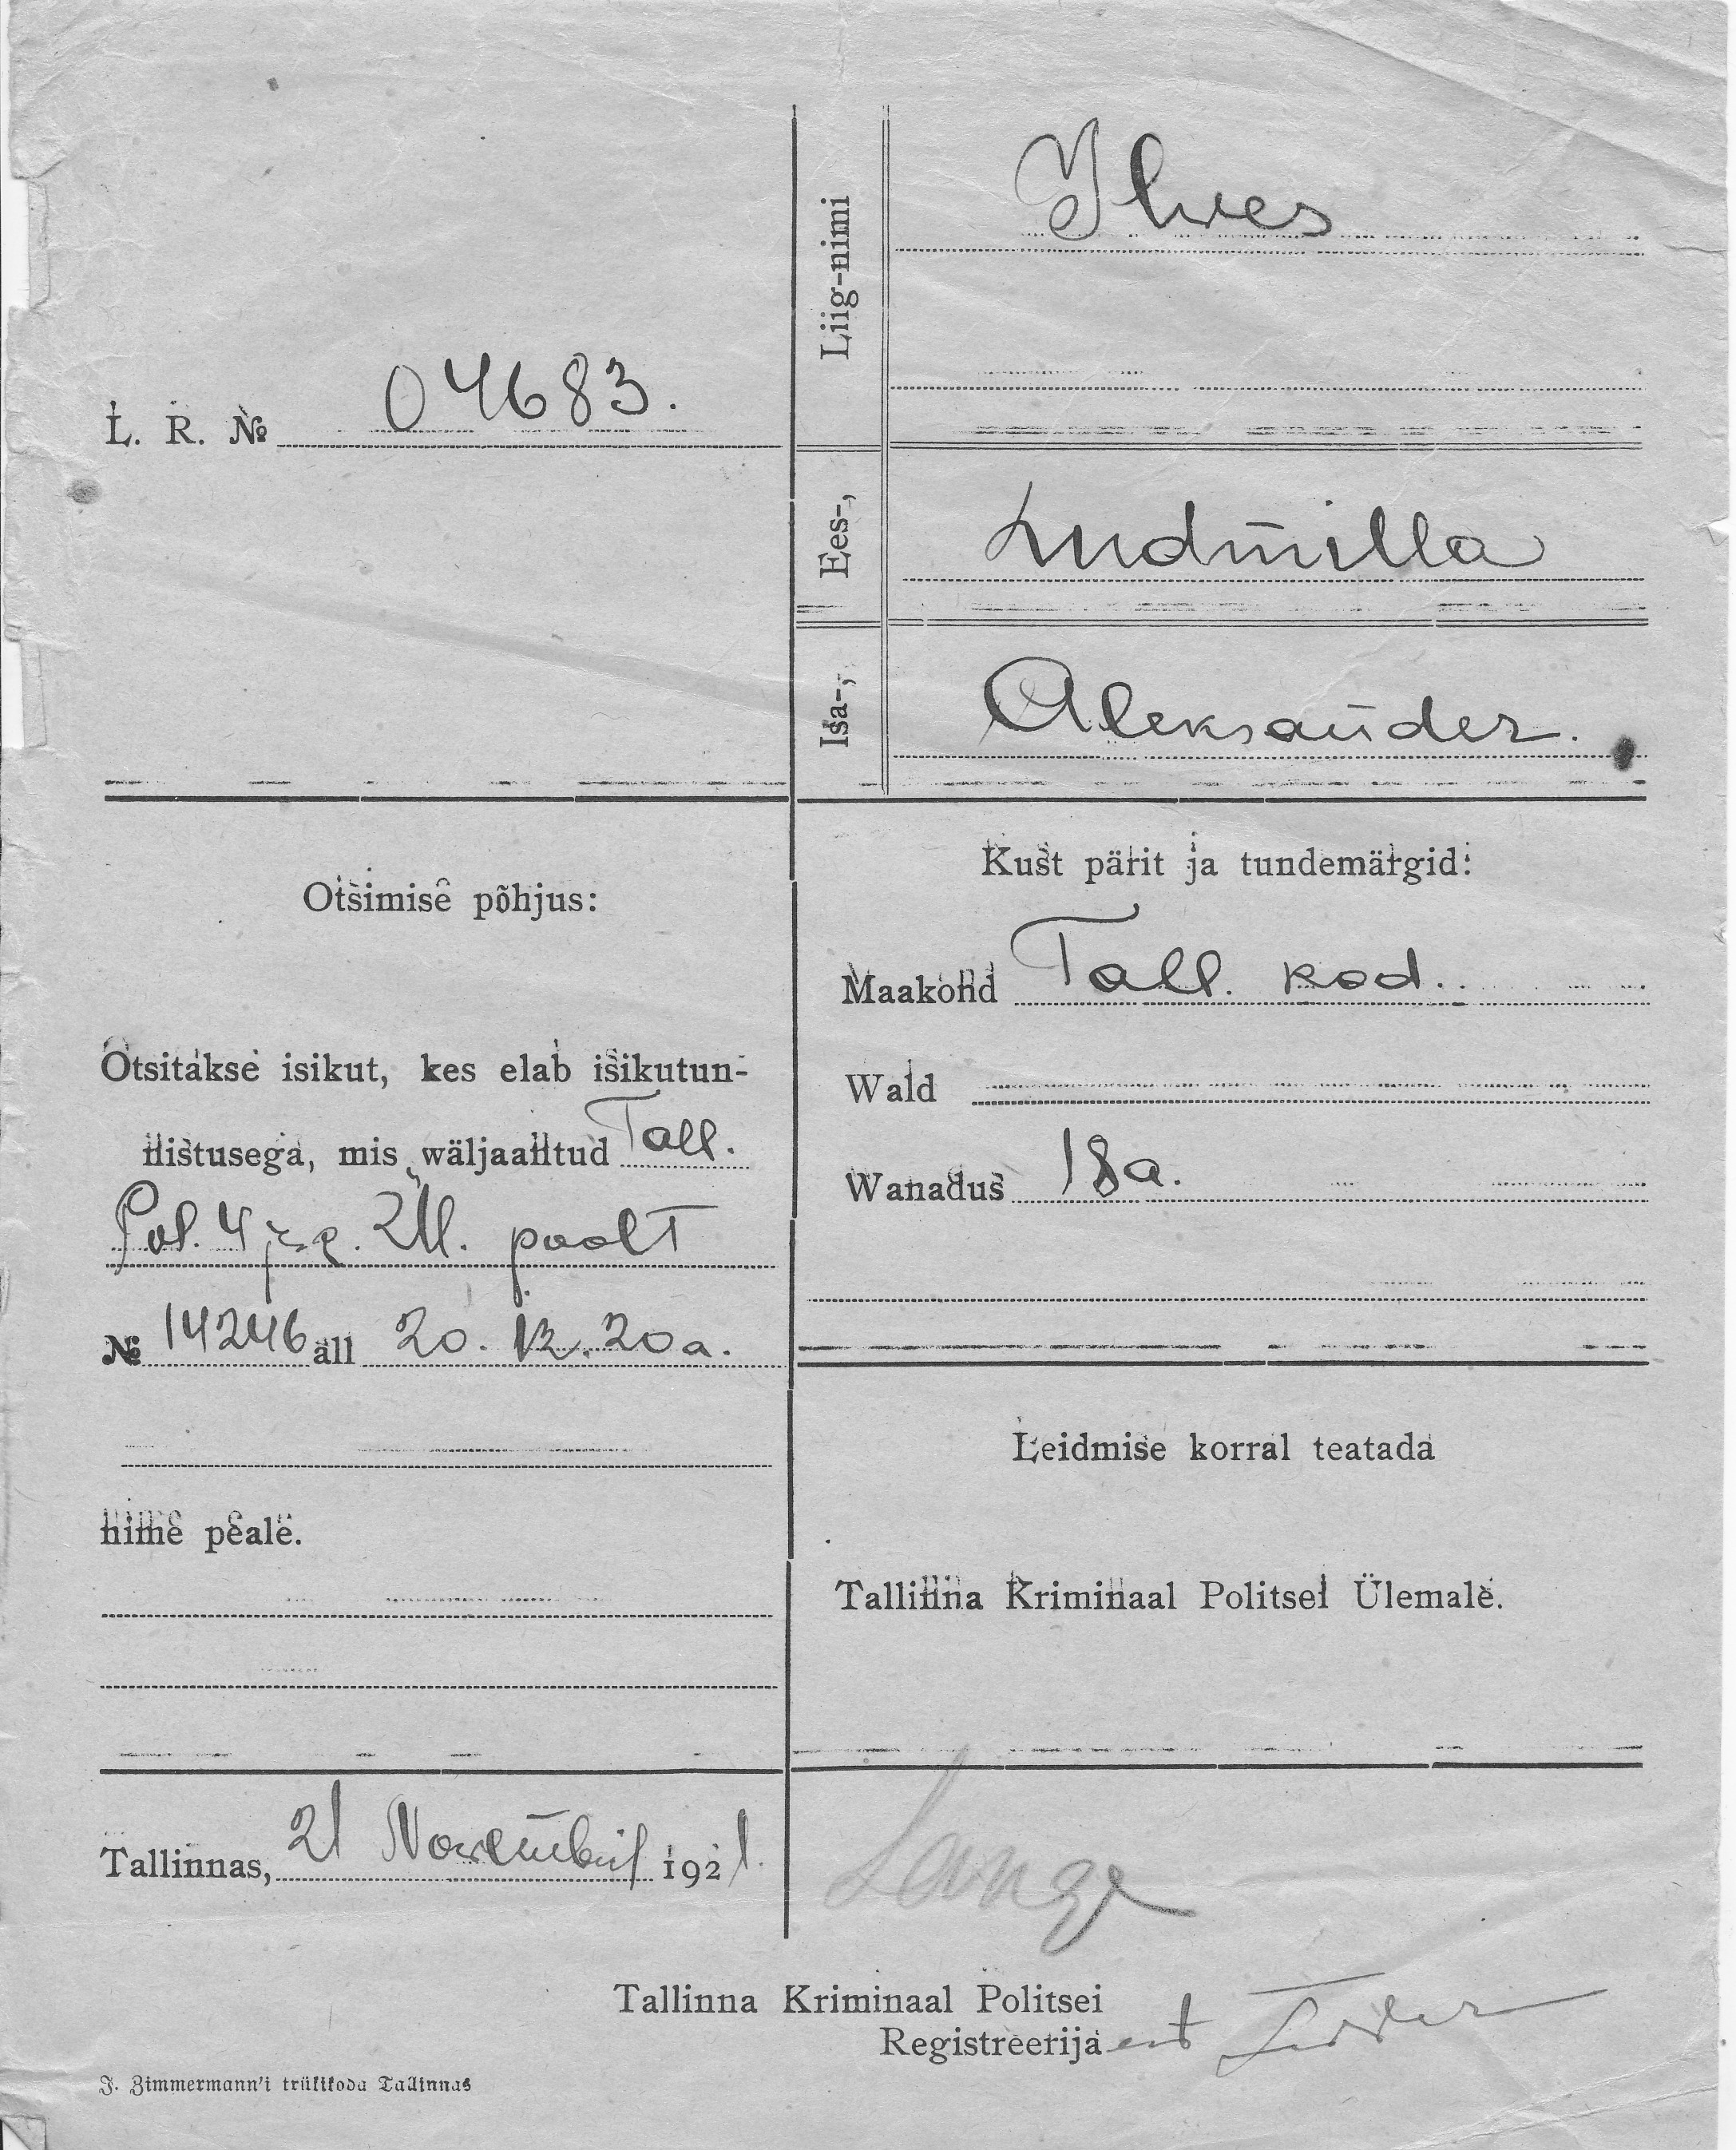 L. R. № 04683.
Liig-nimi Ilves
Ees-, Ludmilla
Isa-, Aleksander.
Otsimise põhjus:
Otsitakse isikut, kes elab isikutun-
nistusega, mis wäljaantud Tall.
Pol. 4 poolt
№ 14246 all 20. 12. 20 a.
nime peale.
Kust pärit ja tundemärgid:
Maakond Tall. kod.
Wald
Wanadus 18 a.
Leidmise korral teatada
Tallinna Kriminaal Politsei Ülemale.
Tallinnas, 21 Novembril 1921.
Lange
Tallinna Kriminaal Politsei
Registreerija
J. Zimmermann'i trükikoda Tallinnas